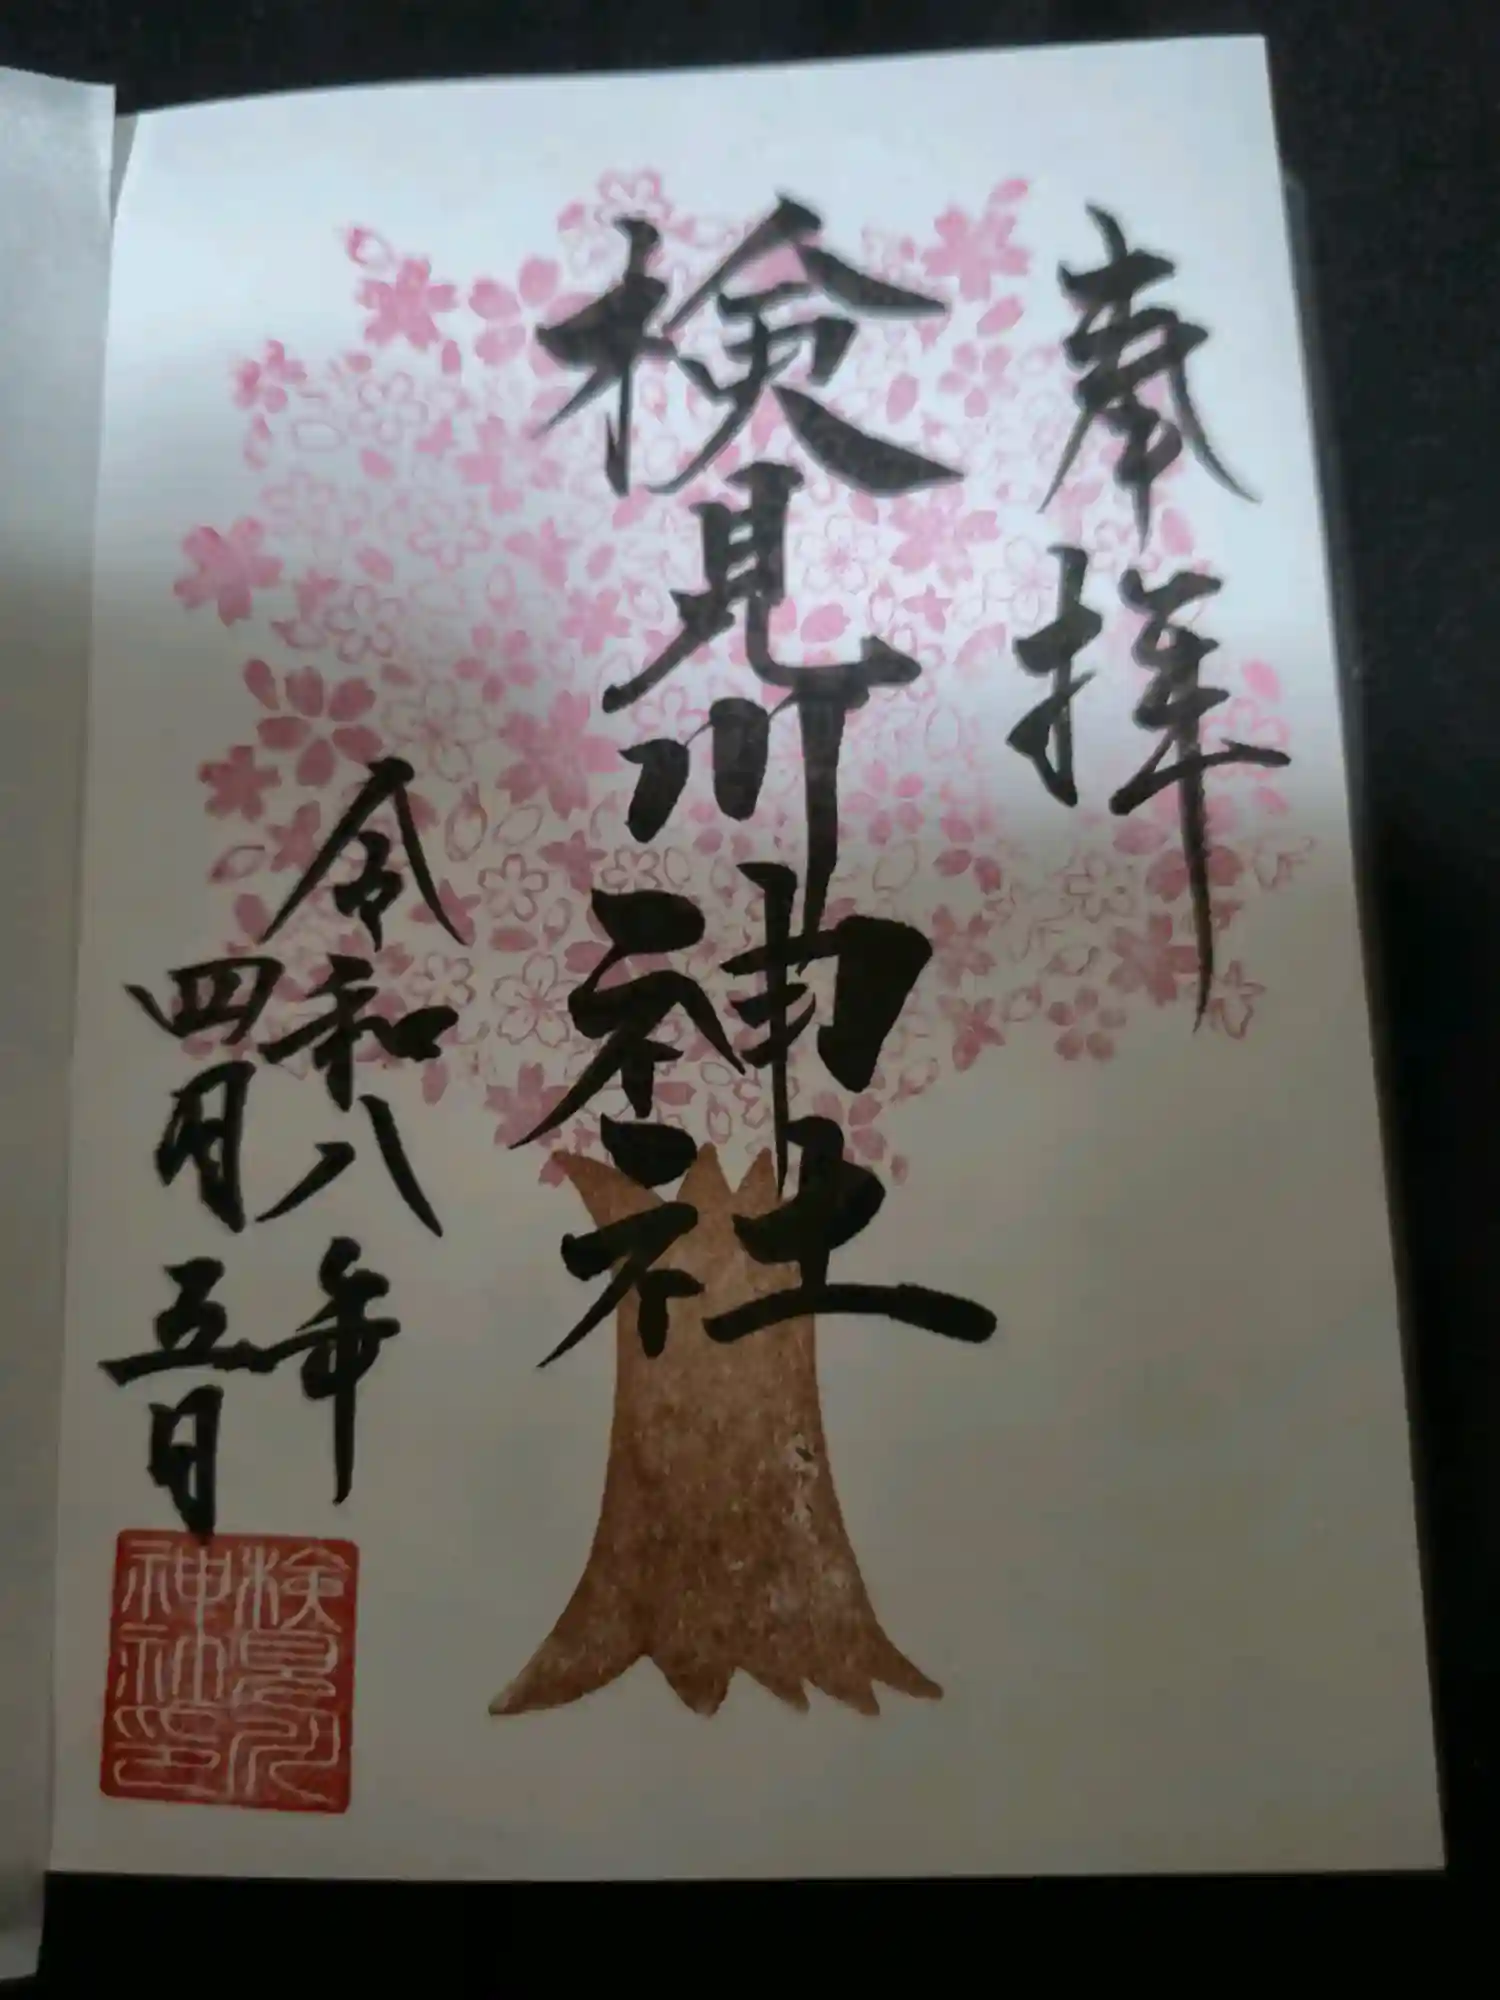 奉拝
検見川神社
令和八年
四月五日
検見川
神社印